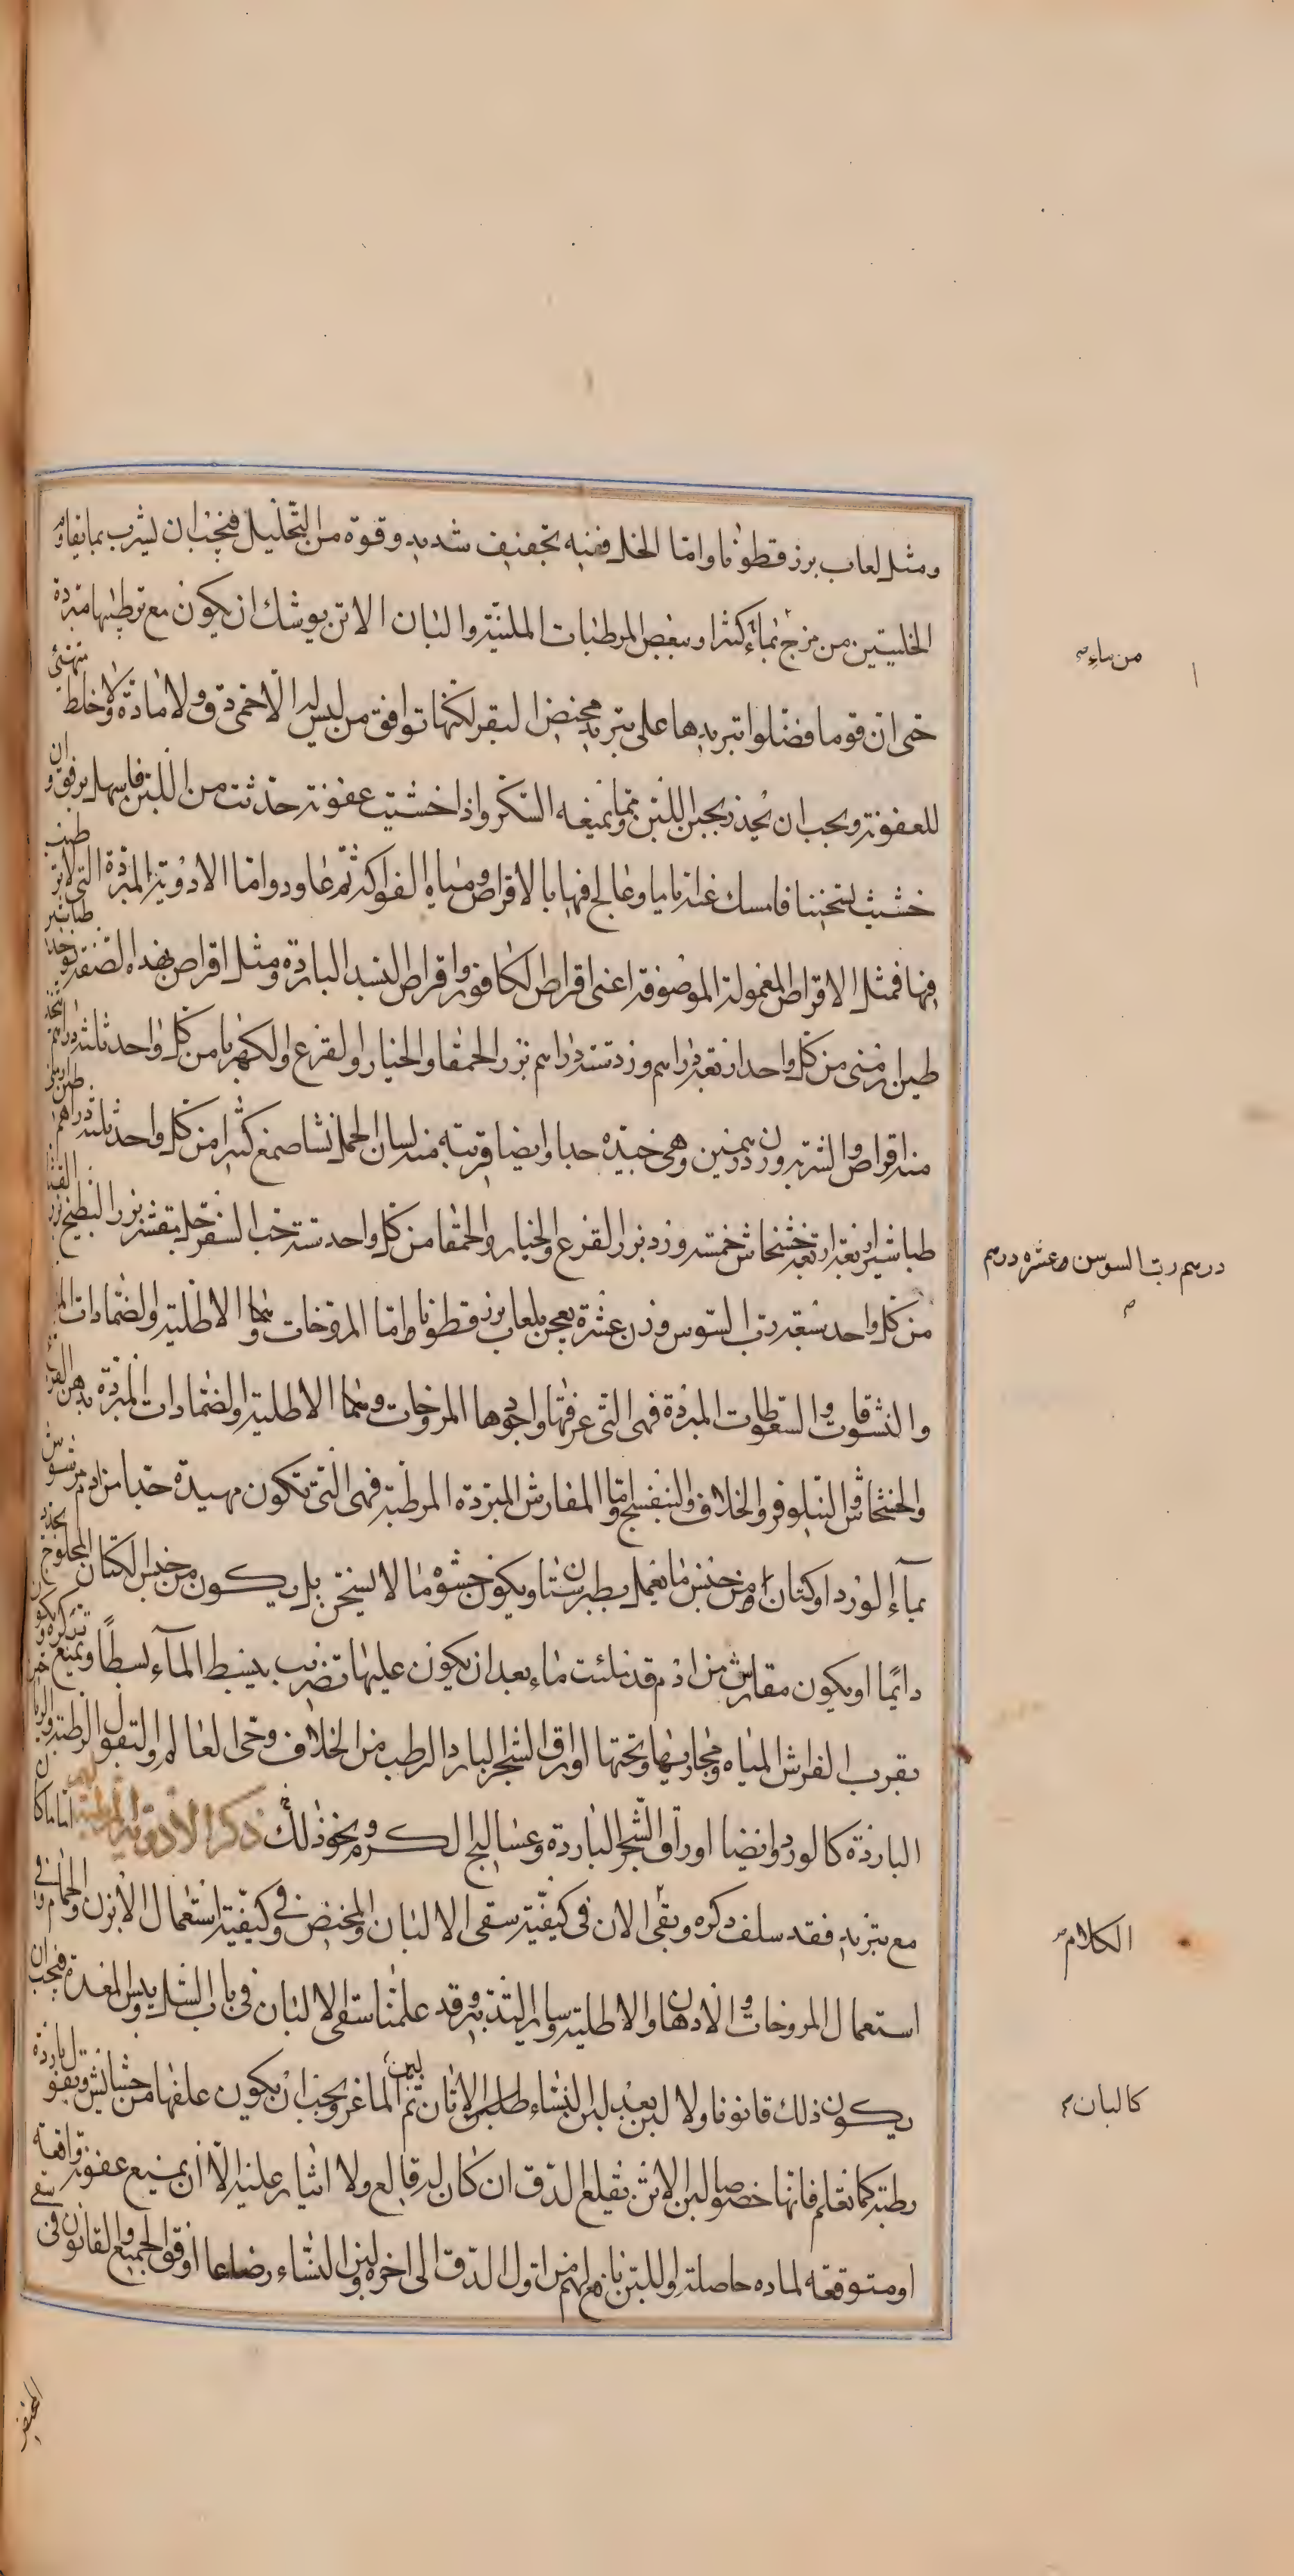 ومثل لعاب برز قطونا واما الخل ففيه تجفيف شديد وقوة من التحليل فيجب ان يشرب بما يقاوم
الخليتين من مزج بماء كثير او ببعض المرطبات الملينة والبان الاتن يوشك ان يكون مع ترطيبها مبردة
حتى ان قوما فضلوا تبريدها على تبريد مخيض البقر لكنها توافق من ليس له الا حمى دق ولا مادة ولا خلط متهيئ
للعفونة ويجب ان يحذر تجبن اللبن ومما يمنعه السكر واذا خشيت عفونة حدثت من اللبن فاسهل برفق وان
خشيت تسخينا فامسك عنه اياما وعالج فيها بالاقراص ومياه الفواكه ثم عاود واما الادوية المبردة التى لا ترطيب
فيها فمثل الاقراص المعمولة الموصوفة اعنى اقراص الكافور واقراص البسد الباردة ومثل اقراص بهذه الصفة يؤخذ طباشير
طين ارمنى من كل واحد اربعة دراهم ورد ستة دراهم بزر الحمقا والخيار والقرع والكهربا من كل واحد ثلثة دراهم يتخذ
منه اقراص والشربة وزن درهمين وهى جيدة جدا وايضا قريبة منه لسان الحمل نشا صمغ كثيرا من كل واحد ثلثة دراهم طين ارمنى
طباشير اربعة اربعة خشخاش خمسة ورد بزر القرع والخيار والحمقا من كل واحد ستة حب السفرجل مقشر بزر البطيخ بزر القثا
من كل واحد سبعة رب السوس وزن عشرة يعجن بلعاب برز قطونا واما المروخات ومما الاطلية والضمادات
والنشوقات والسعوطات المبردة فهى التى عرفتها واجودها المروخات ومما الاطلية والضمادات المبردة بدهن القرع
والخشخاش والنيلوفر والخلاف والبنفسج واما المفارش المبردة المرطبة فهى التى تكون مهيدة جدا من ادم مرشوش
بماء الورد او كتان او من جنس ما يعمل بطبرستان ويكون حشوه ما لا يسخن بل يكون من جنس الكتان المحلوج يجدد
دايما او يكون مفارش من ادم قد ملئت ماء بعد ان يكون عليها تضريب يبسط الماء بسطا ويمنع
بقرب الفراش المياه ومجاريها وتحتها اوراق الشجر البارد الرطب من الخلاف وحى العالم والبقول الرطبة
الباردة كالورد وايضا اوراق الشجر الباردة وعساليج الكرم ونحو ذلك ذكر الادوية المرطبة اما ما كان
مع تبريد فقد سلف ذكره وبقى الان فى كيفية سقى الالبان والمخيض وفى كيفية استعمال الابزن والحمام وفى
استعمال المروخات والادهان والاطلية وساير التدبير وقد علمنا سقى الالبان فى باب السل ويبس المعدة فيجب ان
يكون ذلك قانونا ولا لبن بعد لبن النساء كلبن الاتان ثم لبن الماعز ويجب ان يكون علفها من حشايش وبقول باردة
رطبة كما تعلم فانها خصوصا لبن الاتن يقلع الدق ان كان له قالع ولا ايثار عليه الا ان يمنع عفونة واقعة
او متوقعة لمادة حاصلة واللبن نافع لهم من اول الدق الى اخره ولبن النساء رضاعا اوفق الجميع والقانون فى سقى
من ماء
درهم رب السوس عشرة درهم
الكلام
كالبان
المخيض